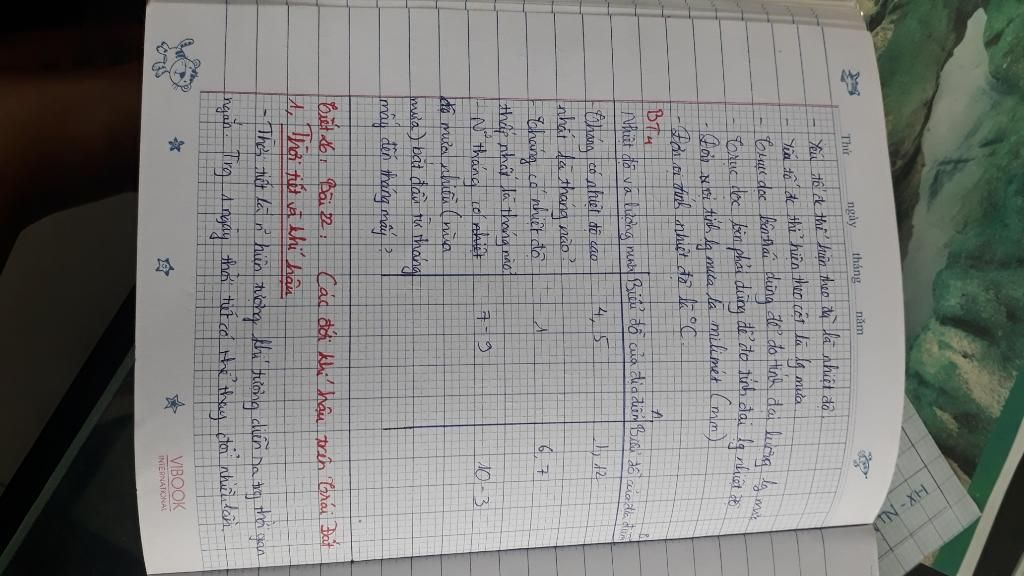 Thứ ngày tháng năm
- Yếu tố đc thể hiện theo là nhiệt độ
- Yếu tố đc thể hiện theo cột là lg mưa
- Trục dọc bên dùng để đo tính đại lượng lg mưa
- Trục dọc bên phải dùng để đo tính đại lg nhiệt độ
- Đơn vị tính lg mưa là milimet (mm)
- Đơn vị tính nhiệt độ là °C.
BT
Nhiệt độ và lượng mưa Biểu đồ của địa điểm 1 Biểu đồ của địa điểm
Tháng có nhiệt độ cao 4, 5 11, 12
nhất là tháng nào?
- Tháng có nhiệt độ 1 6, 7
thấp nhất là tháng nào
- N² tháng có 7 - 9 10 - 3
mưa nhiều (mùa
mưa) bắt đầu từ tháng
mấy đến tháng mấy?
Tiết 26: Bài 22: Các đới khí hậu trên Trái Đất
1, Thời tiết và khí hậu
- Thời tiết là n² hiện tượng khí tượng diễn ra trg thời gian
ngắn. Trg 1 ngày thời tiết có thể thay đổi nhiều lần
VIBOOK
INTERNATIONAL